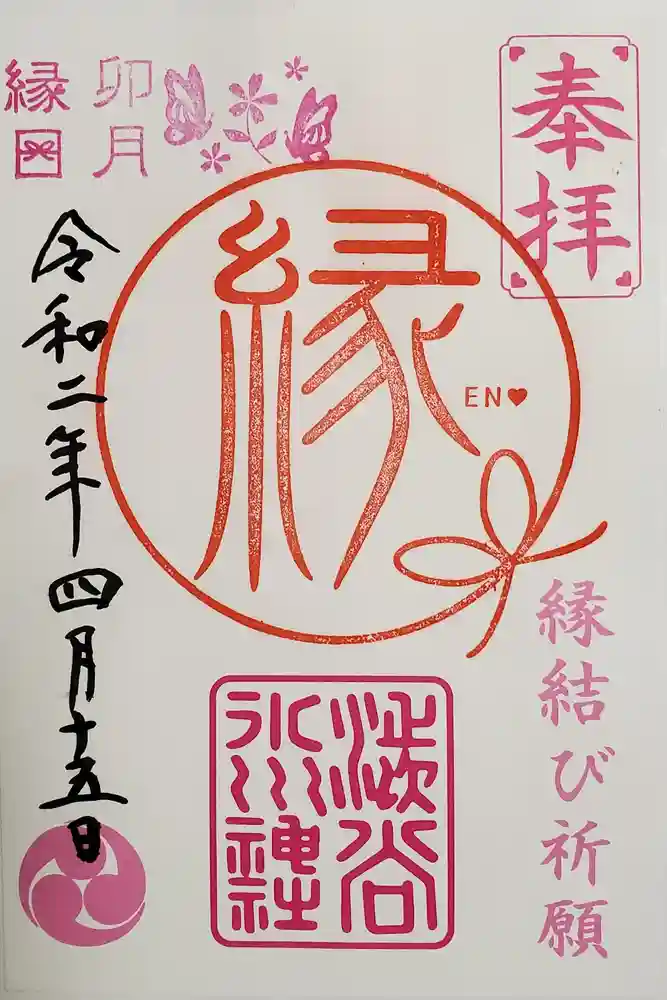 奉拝
縁結び祈願
縁
EN♥
渋谷
氷川
神社
卯月
縁日
令和二年四月十五日